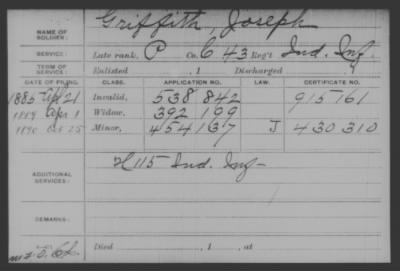 NAME OF SOLDIER: Griffith, Joseph
SERVICE: Late rank, P Co. C 43 Reg't Ind. Inf.
TERM OF SERVICE: Enlisted , 1 Discharged , 1
DATE OF FILING. CLASS. APPLICATION NO. LAW. CERTIFICATE NO.
1885 Apl 21 Invalid, 538 842 915 161
1889 Apr 1 Widow, 392 199
1890 Oct 25 Minor, 454 137 J 430 310
ADDITIONAL SERVICES: H 115 Ind. Inf-
REMARKS:
Died , 1 , at